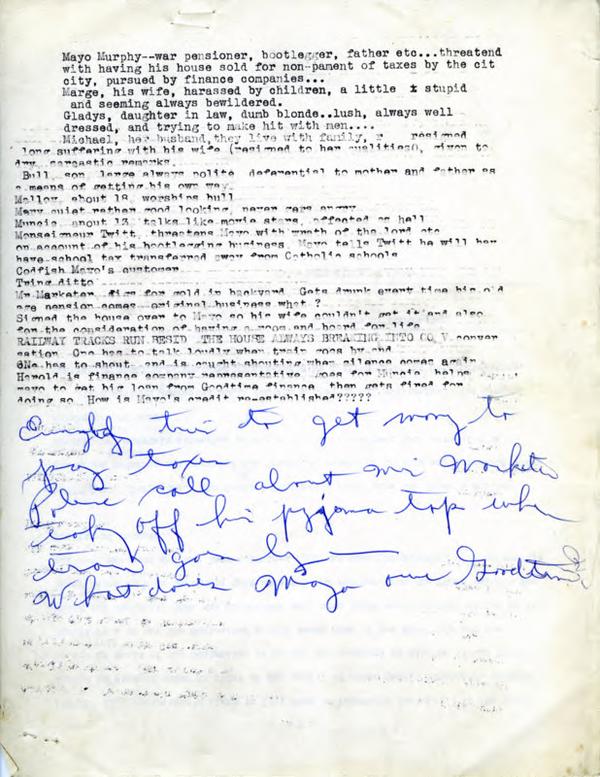 Mayo Murphy--war pensioner, bootlegger, father etc...threatend
with having his house sold for non-pament of taxes by the cit
city, pursued by finance companies...
Marge, his wife, harassed by children, a little t stupid
and seeming always bewildered.
Gladys, daughter in law, dumb blonde..lush, always well
dressed, and trying to make hit with men....
Michael, her husband,they live with family, r resigned
long suffering with his wife (resigned to her qualities(), given to
dry sarcastic remarks.
Bull son large always polite deferential to mother and father as
a means of getting his own way.
Malloy about 18 worships bull
Mary quiet rather good looking, never gets angry
Muncie about 13 talks like movie stars, affected as hell
Monseigneur Twitt, threatens Mayo with wrath of the lord etc
on account of his bootlegging business. Mayo tells Twitt he will her
have school tax transferred away from Catholic schools
Codfish Mayo's customer
Twing ditto
Mr Marketer digs for gold in backyard Gets drunk every time his old
age pension comes original business what ?
Signed the house over to Mayo so his wife couldn't get it and also
for the consideration of having a room and board for life
RAILWAY TRACKS RUN BESID THE HOUSE ALWAYS BREAKING INTO CO V conver
sation One has to talk loudly when train goes by and
One has to shout and is caught shouting when silence comes again
Harold is finance company representative goes for Muncie helps
mayo to get his loan from Goodtime finance then gets fired for
doing so How is Mayo's credit re-established?????
Everybody tries to get money to
pay taxes
Police call about Mr Marketer
taking off his pyjama top when
train goes by —
What does Mayo owe Goodtime?